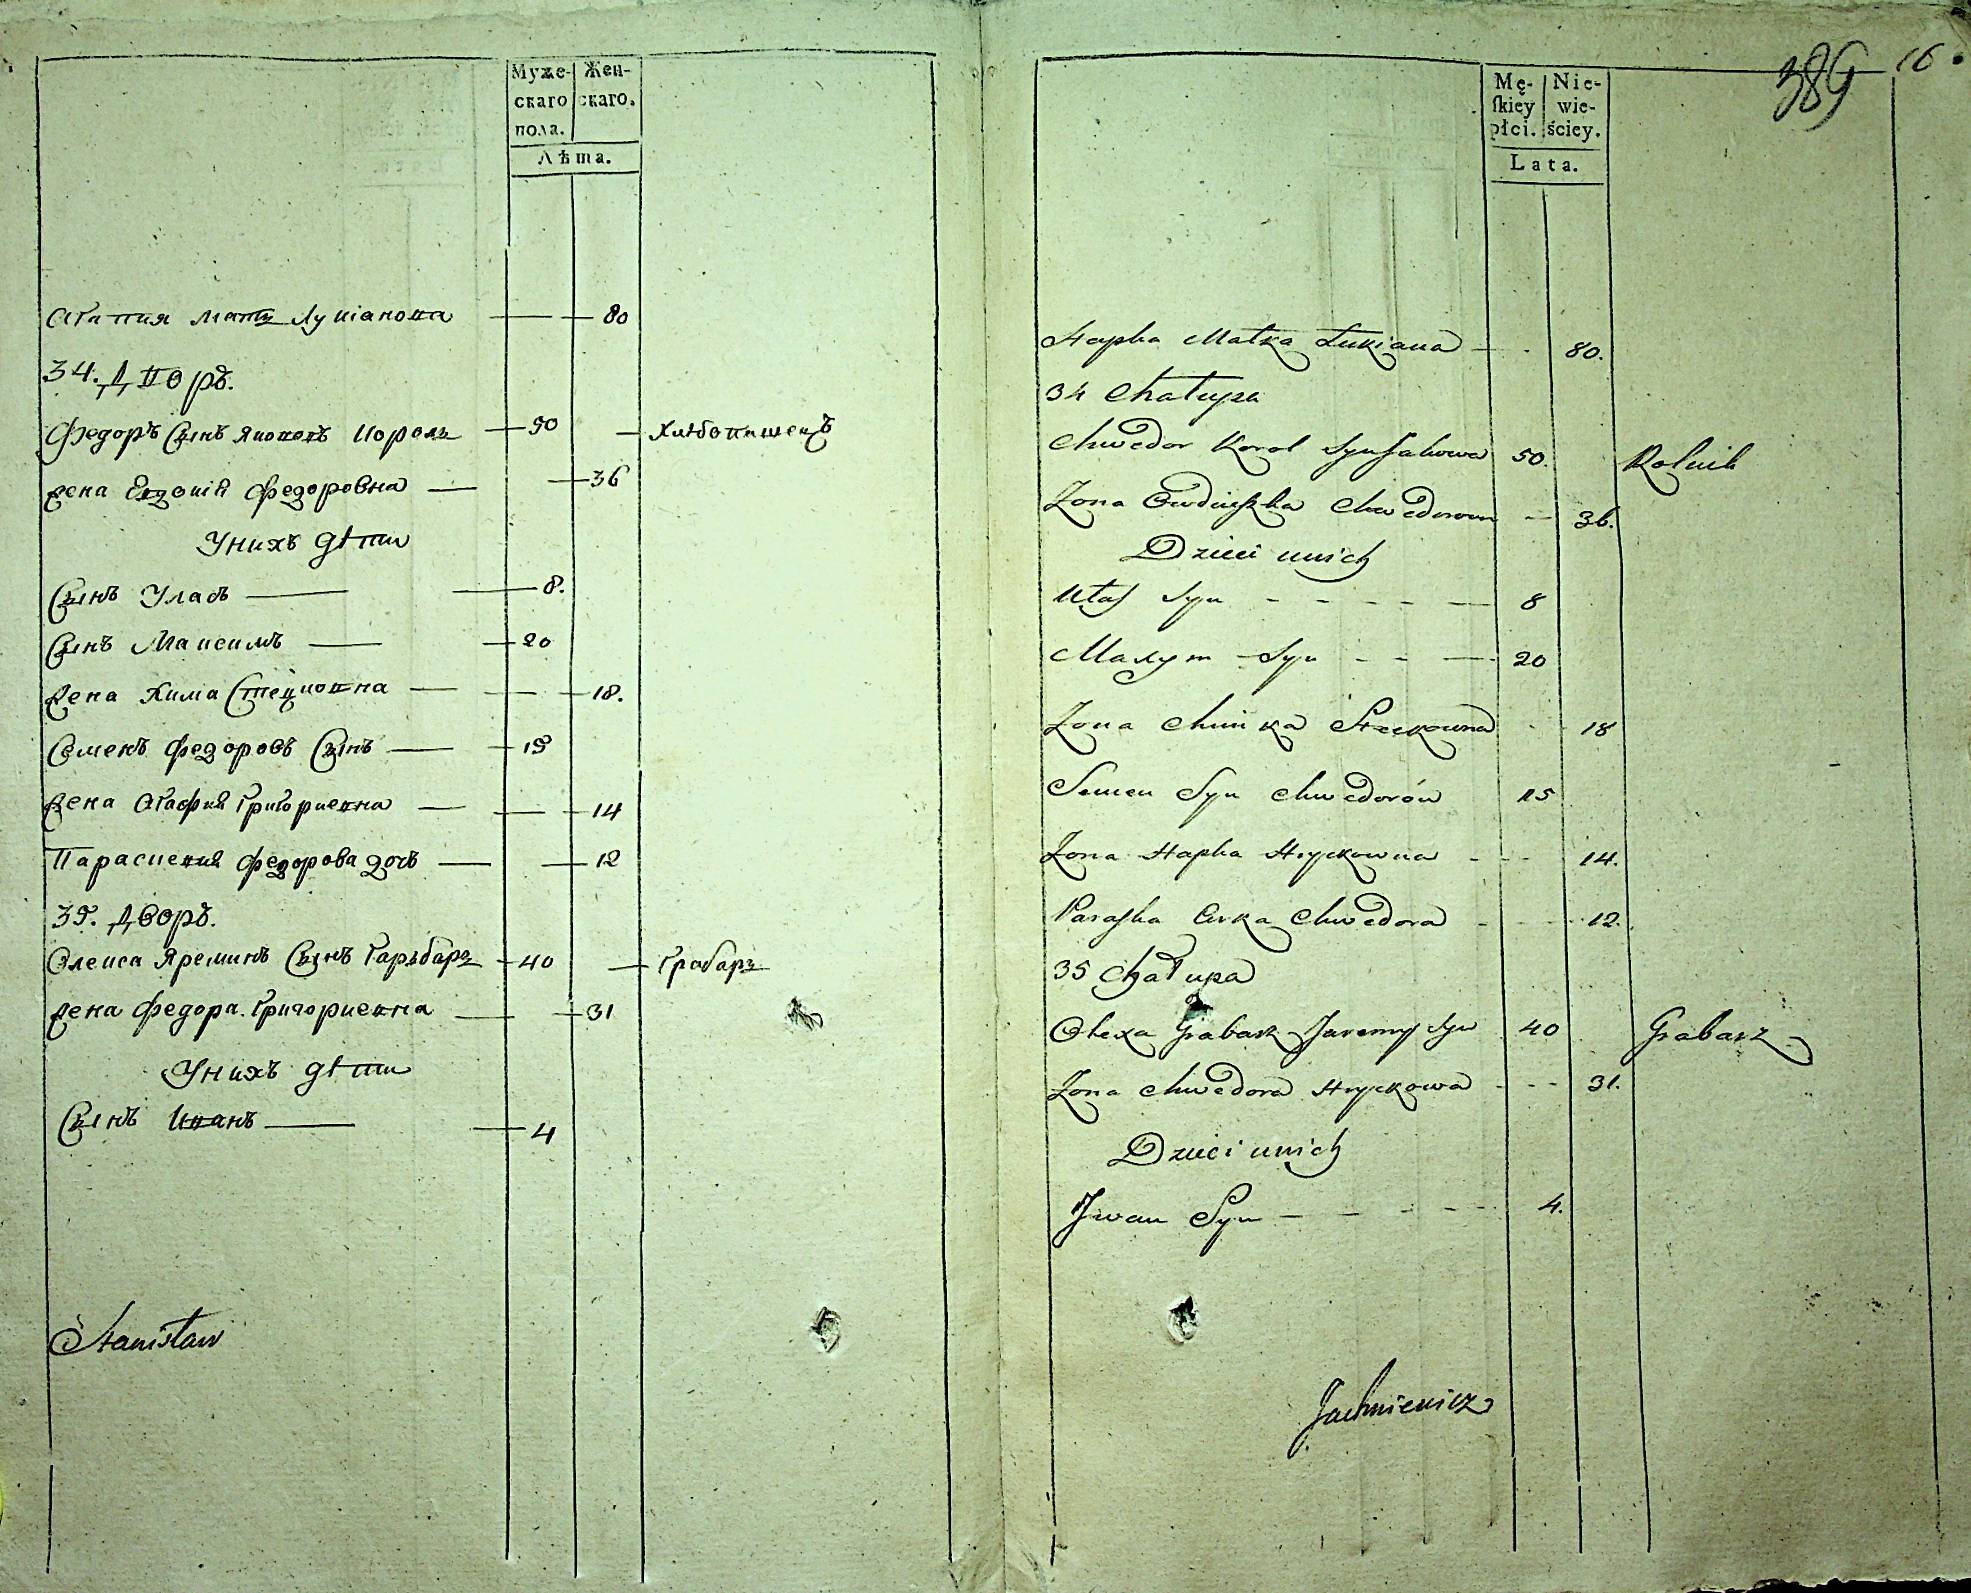 Муже-
скаго
пола.
Жен-
скаго.
Лѣта.
Агапия мать Лукіанова — 80
34. Дворъ.
Федоръ Сынъ Якововъ Король — 50 — Хлѣбопашецъ
Жена Евдокія Федоровна — 36
У нихъ дѣти
Сынъ Уласъ — 8.
Сынъ Максимъ — 20
Жена Хима Стецковна — 18.
Семенъ Федоровъ Сынъ — 15
Жена Агафия Григориевна — 14
Параскевия Федорова дочь — 12
35. Дворъ.
Олекса Яреминъ Сынъ Гарьбарь — 40 — Грабарь
Жена Федора Григориевна — 31
У нихъ дѣти
Сынъ Иванъ — 4
Stanisław
389 16.
Mę-
skiey
płci.
Nie-
wie-
ściey.
Lata.
Hapka Matka Łukiana — 80.
34 Chałupa
Chwedor Korol Syn Jakowa 50. Rolnik
Żona Chwedorowa — 36.
Dzieci unich
Ułas Syn — 8
Maxym Syn — 20
Żona Chimka Steckowna — 18
Semen Syn Chwedorów 15
Żona Hapka Hryckowna — 14.
Paraska Curka Chwedora — 12.
35 Chałupa
Olexa Grabarz Jaremy Syn 40 Grabarz
Żona Chwedora Hryckowa — 31.
Dzieci unich
Jwan Syn — 4.
Jachniewicz